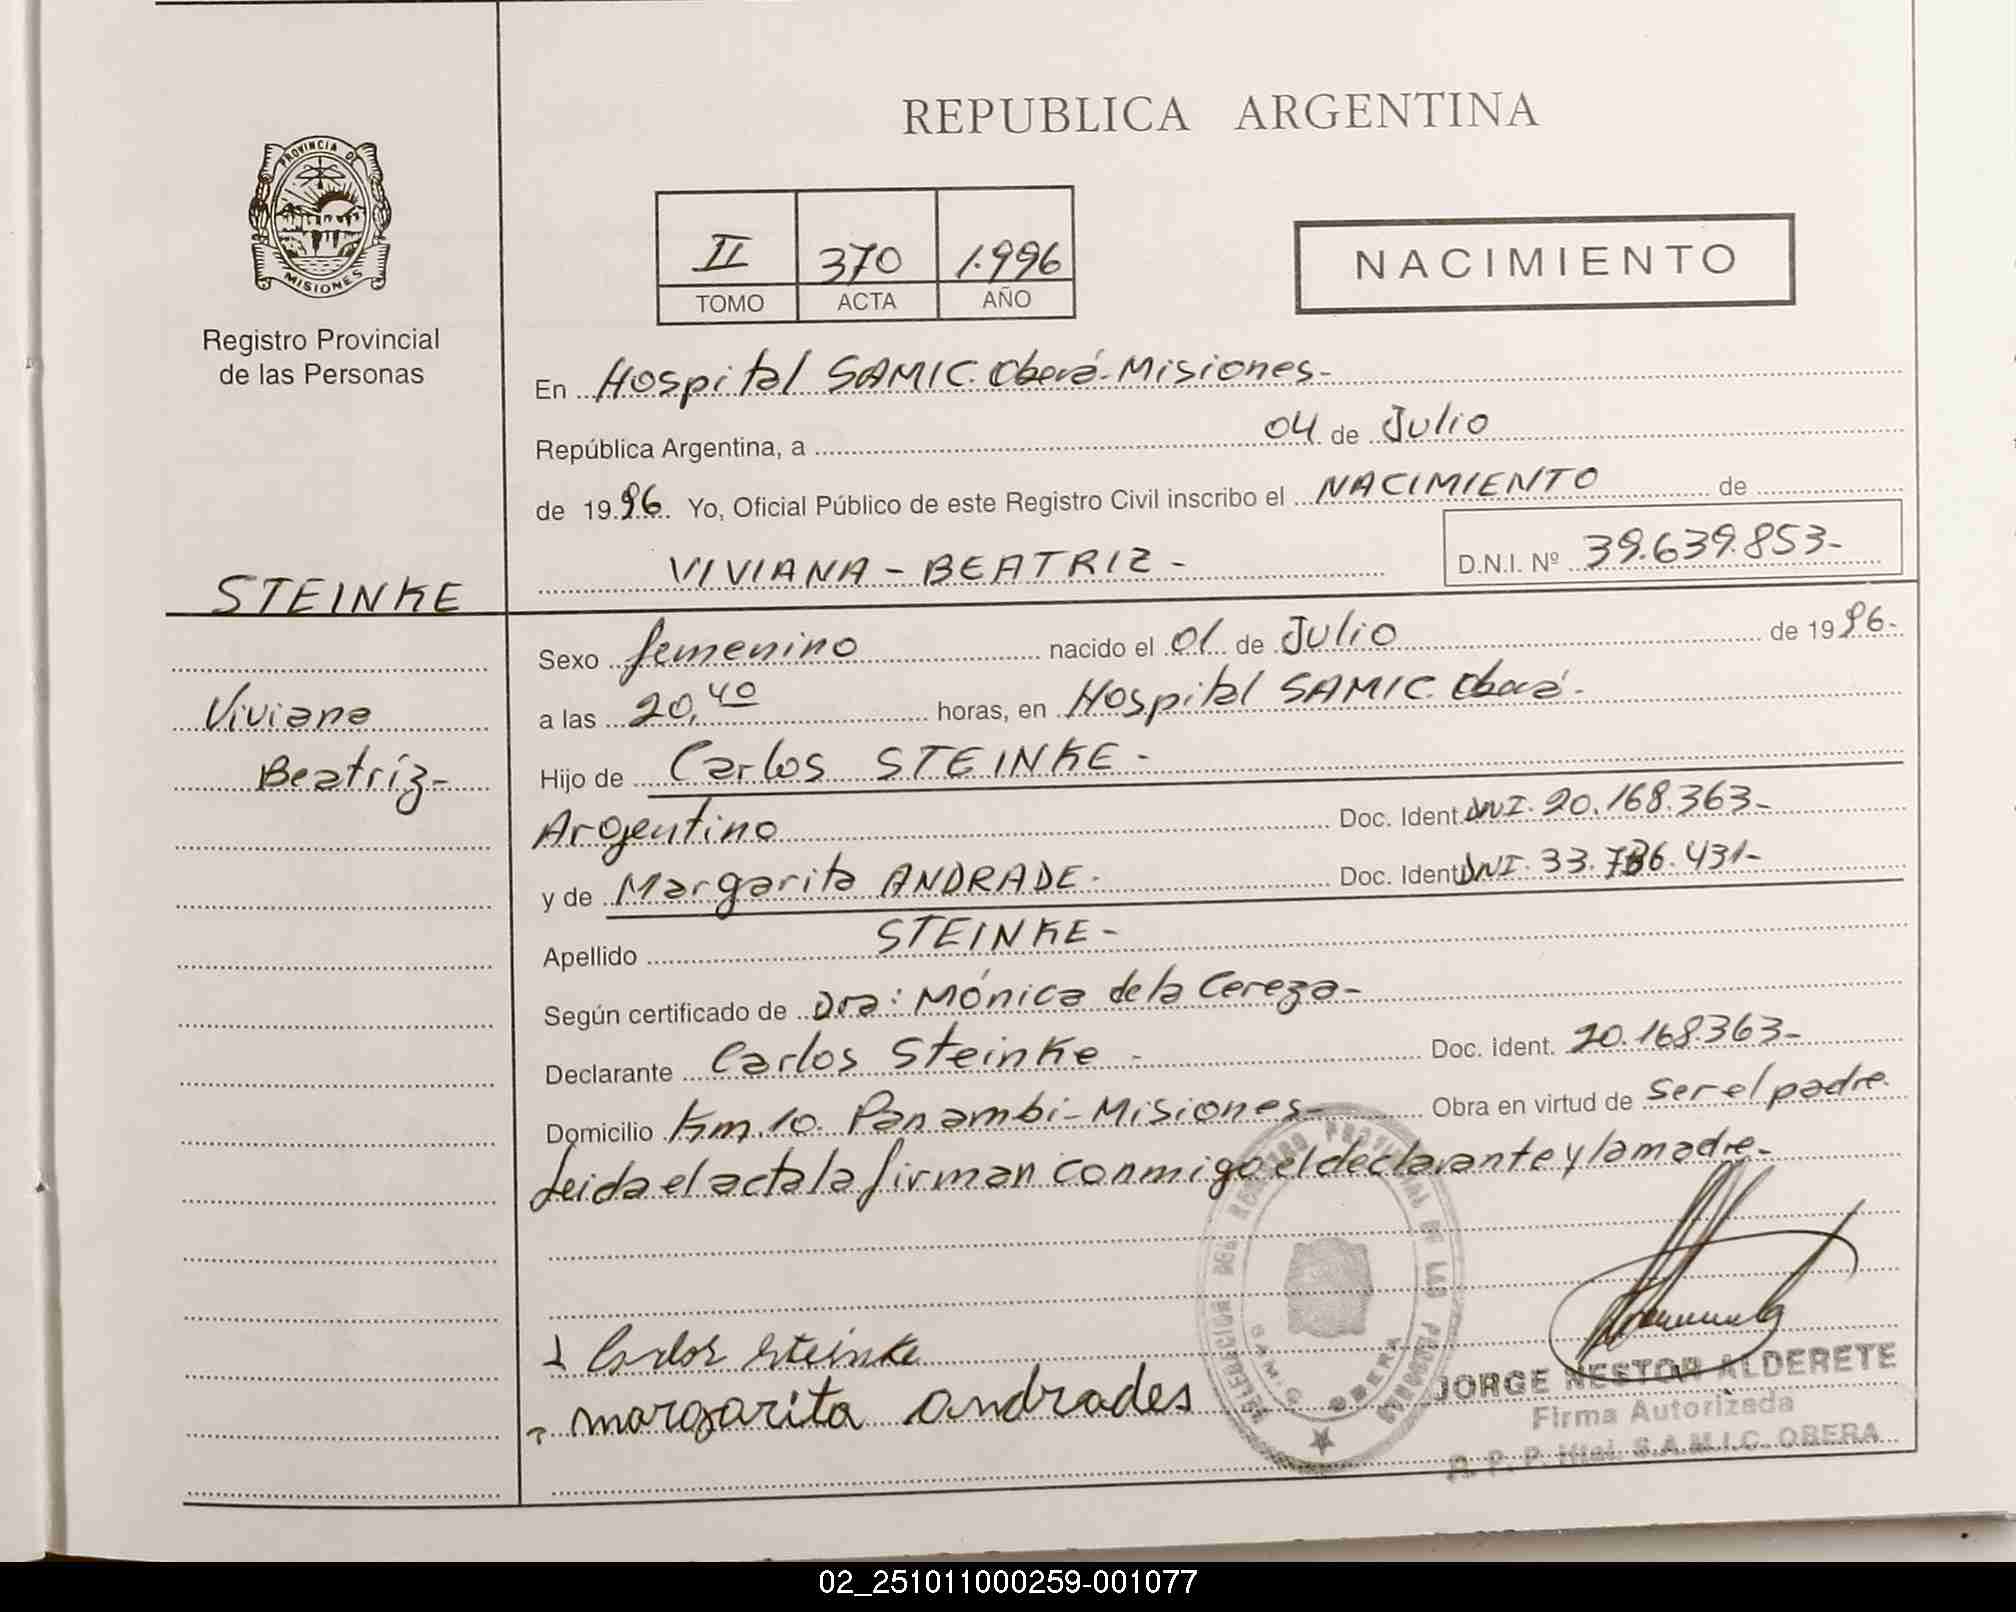 REPUBLICA ARGENTINA
PROVINCIA DE MISIONES
Registro Provincial
de las Personas
II 370 1.996
TOMO ACTA AÑO
NACIMIENTO
En Hospital SAMIC. Oberá-Misiones-
República Argentina, a 04 de Julio
de 1996. Yo, Oficial Público de este Registro Civil inscribo el NACIMIENTO de
VIVIANA-BEATRIZ- D.N.I. Nº 39.639.853-
STEINKE
Viviana
Beatriz-
Sexo femenino nacido el 01 de Julio de 1996-
a las 20,40 horas, en Hospital SAMIC. Oberá-
Hijo de Carlos STEINKE-
Argentino Doc. Ident. DNI. 20.168.363-
y de Margarita ANDRADE- Doc. Ident. DNI. 33. .431-
Apellido STEINKE-
Según certificado de Dra: Mónica de la Cereza-
Declarante Carlos Steinke- Doc. ident. 20.168.363-
Domicilio Km.10. Panambi-Misiones- Obra en virtud de Ser el padre.
Leida el acta la firman conmigo el declarante y la madre-
Carlos Steinke
margarita andrades
DELEGACION DEL REGISTRO PROVINCIAL DE LAS PERSONAS
S.A.M.I.C. OBERA
JORGE NESTOR ALDERETE
Firma Autorizada
R. P. P. Htal. S.A.M.I.C. OBERA
02_251011000259-001077